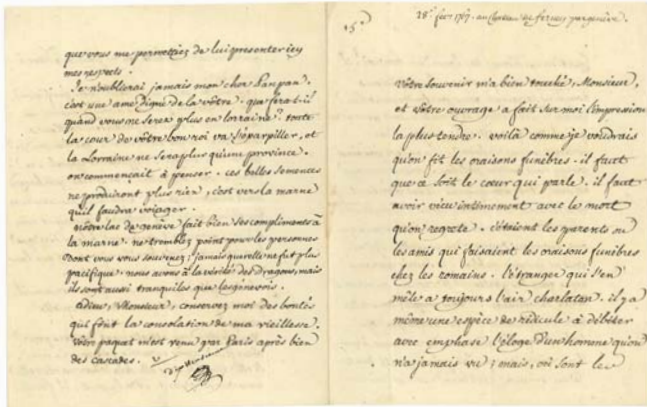 que vous me permettiez de lui presenter icy
mes respects.
Je n'oublierai jamais mon cher Panpan.
c'est une ame digne de la vôtre. que fera-t-il
quand vous ne serez plus en lorraine? toute
la cour de vôtre bon roi va s'éparpiller, et
la Lorraine ne sera plus qu'une province.
on commençait à penser. ces belles semences
ne produiront plus rien, c'est vers la marne
qu'il faudra voiager.
nôtre lac de genève fait bien ses compliments à
la marne. ne tremblez point pour les personnes
dont vous vous souvenez; jamais querelle ne fut plus
pacifique. nous avons à la vérité des Dragons, mais
ils sont aussi tranquiles que les genevois.
Adieu, Monsieur, conservez moi des bontés
qui font la consolation de ma vieillesse.
Votre paquet m'est venu par Paris après bien
des cascades. V
28e. fevr 1767. au chateau de ferney par genève.
Vôtre souvenir m'a bien touché, Monsieur,
et vôtre ouvrage a fait sur moi l'impression
la plus tendre. voilà comme je voudrais
qu'on fit les oraisons funèbres. il faut
que ce soit le cœur qui parle. il faut
avoir vécu intimement avec le mort
qu'on regrete. c'étaient les parents ou
les amis qui faisaient les oraisons funèbres
chez les romains. l'étranger qui s'en
mêle a toujours l'air charlatan. il y a
même une espèce de ridicule à débiter
avec emphase l'éloge d'un homme qu'on
n'a jamais vu; mais, où sont les